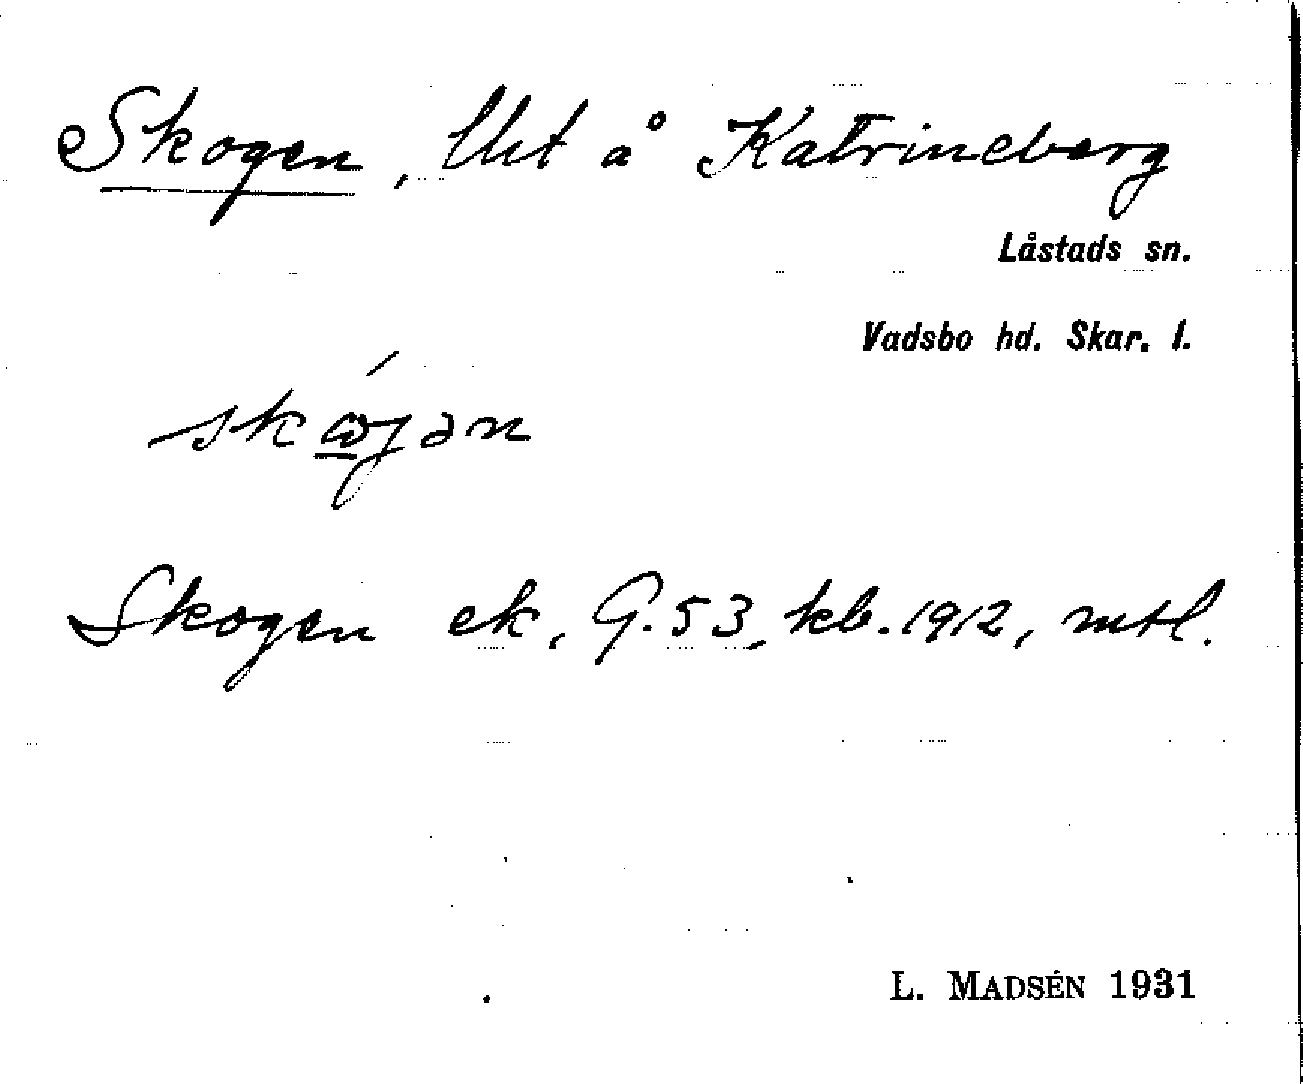 Skogen, lht å Katrineberg
Låstads sn.
Vadsbo hd. Skar. l.
skώ̲jən
Skogen ek, G. 53, kb. 1912, mtl.
L. MADSÉN 1931